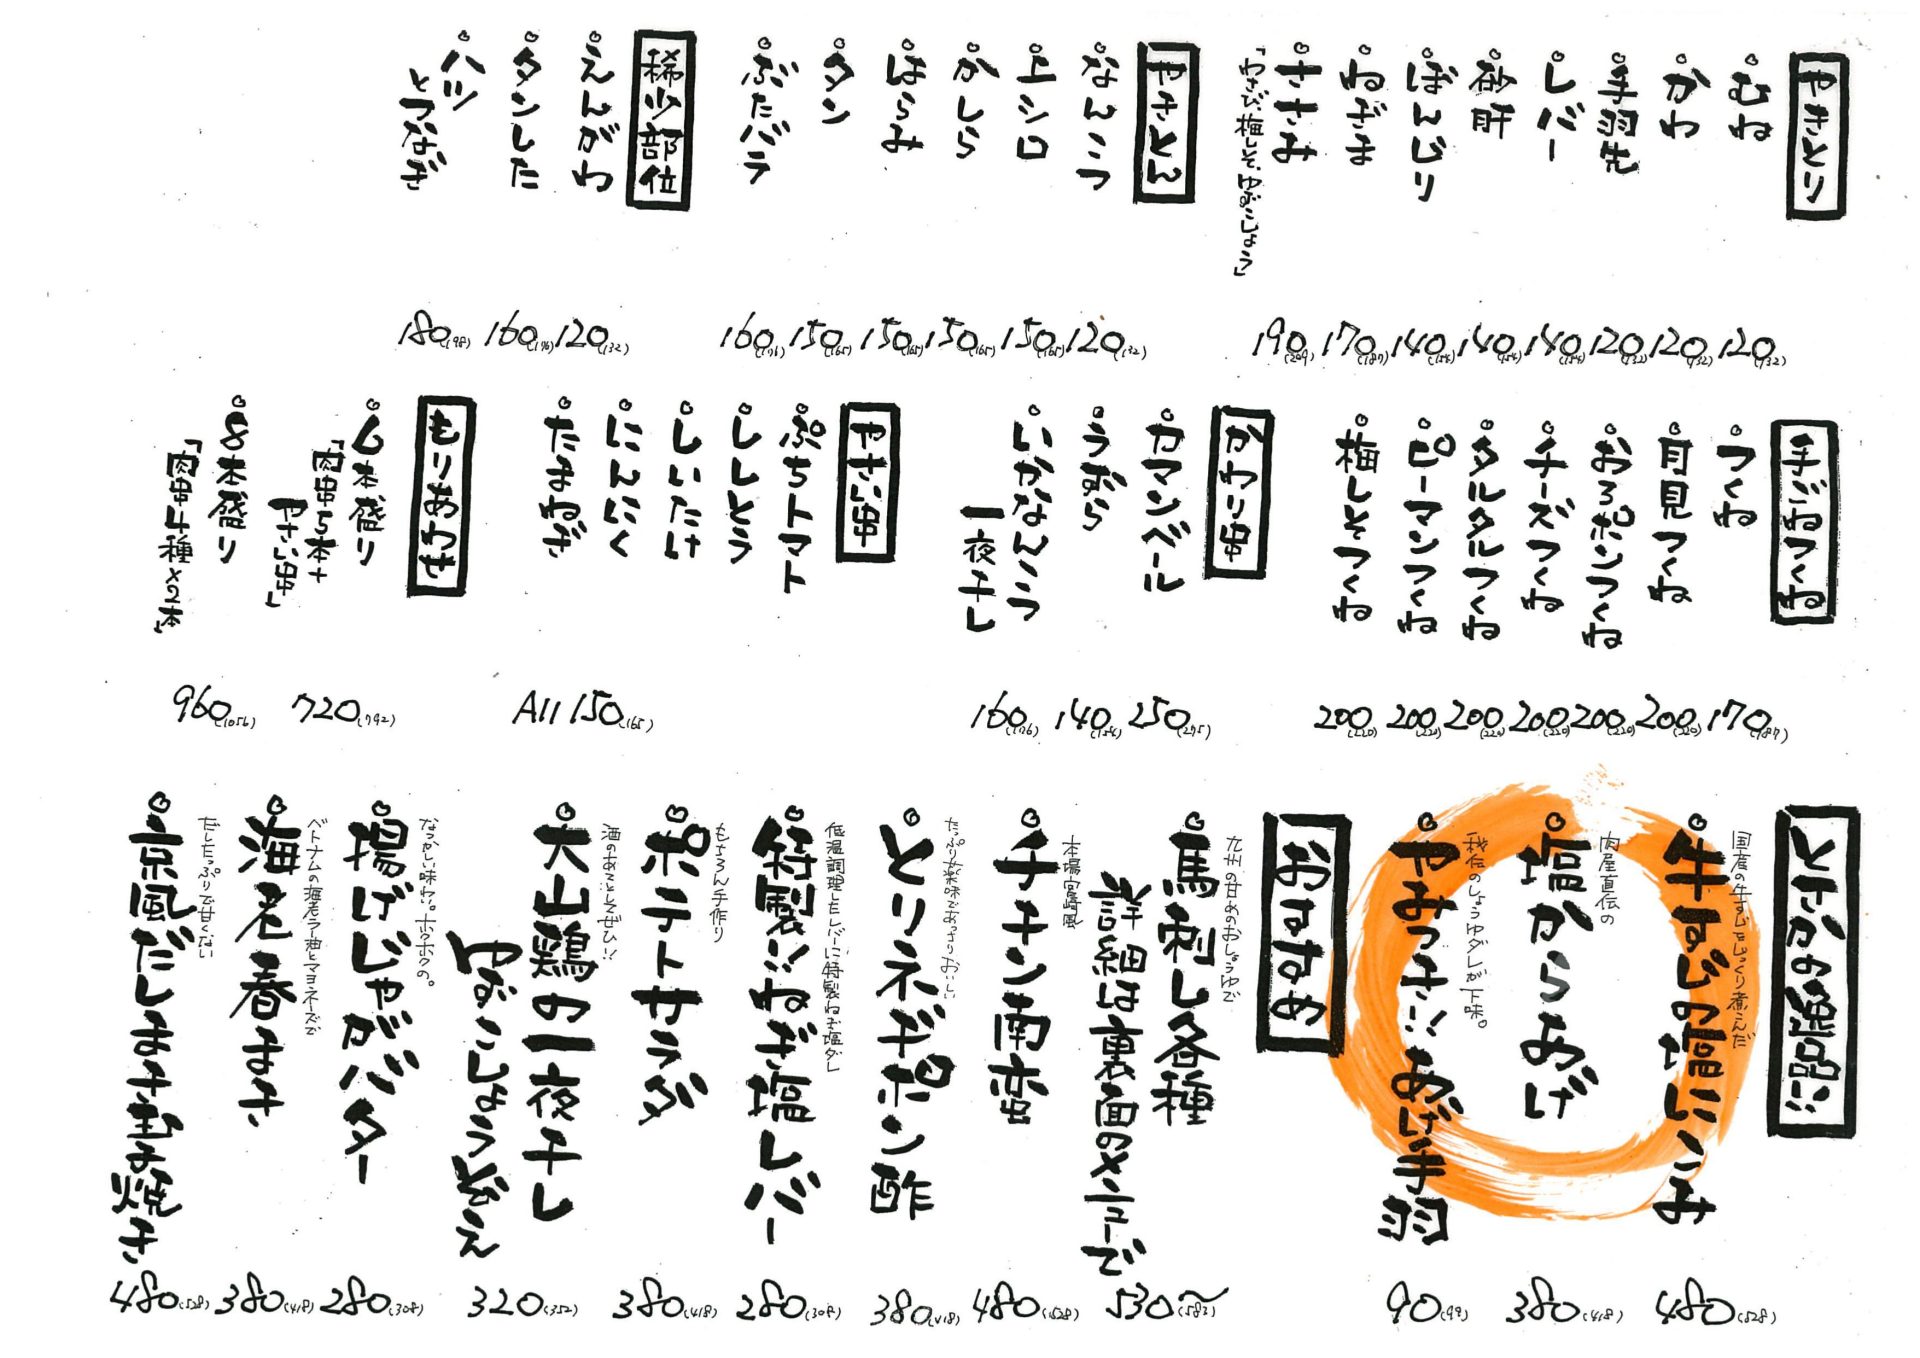 やきとり
むね
120(132)
かわ
120(132)
手羽先
120(132)
レバー
140(154)
砂肝
140(154)
ぼんじり
140(154)
ねぎま
170(187)
ささみ
「わさび、梅しそ、ゆずこしょう」
190(209)
やきとん
なんこつ
120(132)
上シロ
150(165)
かしら
150(165)
はらみ
150(165)
タン
150(165)
ぶたバラ
160(176)
稀少部位
えんがわ
120(132)
タンした
160(176)
ハツ
とつなぎ
180(198)
手ごねつくね
つくね
170(187)
月見つくね
200(220)
おろポンつくね
200(220)
チーズつくね
200(220)
タルタルつくね
200(220)
ピーマンつくね
200(220)
梅しそつくね
200(220)
かわり串
カマンベール
250(275)
うずら
140(154)
いかなんこつ
一夜干し
160(176)
やさい串
ぷちトマト
ししとう
しいたけ
にんにく
たまねぎ
All 150(165)
もりあわせ
6本盛り
「肉串5本+
やさい串」
720(792)
8本盛り
「肉串4種×2本」
960(1056)
とさかの絶品!!
国産の牛すじでじっくり煮こんだ
牛すじの塩にこみ
480(528)
肉屋直伝の
塩からあげ
380(418)
秘伝のしょうゆダレが下味。
やみつき!!あげ手羽
90(99)
おすすめ
九州の甘めのおしょうゆで
馬刺し各種
詳細は裏面のメニューで
530〜(583)
本場宮崎風
チキン南蛮
480(528)
たっぷり薬味であっさりおいしい
とりネギポン酢
380(418)
低温調理したレバーに特製ねぎ塩ダレ
特製!!ねぎ塩レバー
280(308)
もちろん手作り
ポテトサラダ
380(418)
酒のあてとしてぜひ!!
大山鶏の一夜干し
ゆずこしょうぞえ
320(352)
なつかしい味わい。ホクホクの。
揚げじゃがバター
280(308)
ベトナムの海老ラー油とマヨネーズで
海老春まき
380(418)
だしたっぷりで甘くない
京風だしまき玉子焼き
480(528)